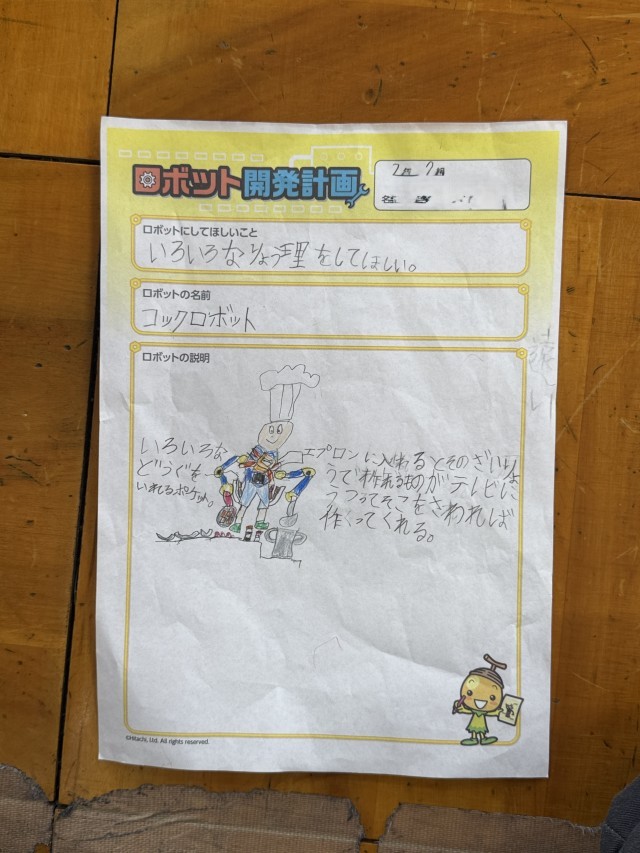 ロボット開発計画
2 7
ロボットにしてほしいこと
いろいろなりょう理をしてほしい。
ロボットの名前
コックロボット
ロボットの説明
いろいろな
どうぐを
いれるポケット。
エプロンに入れるとそのざいりょ
うで作れるものがテレビに
うつってそこをさわれば
作ってくれる。
©Hitachi, Ltd. All rights reserved.